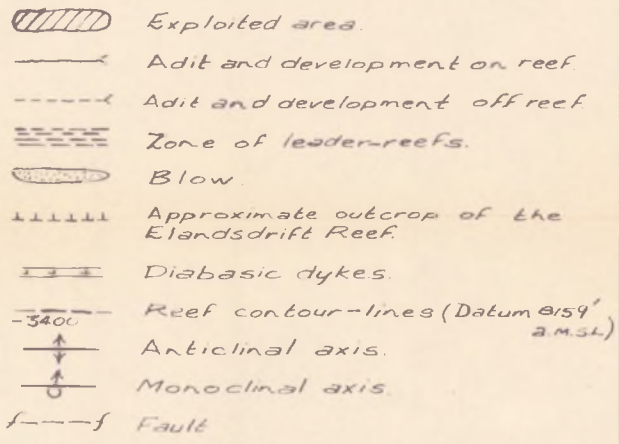 Exploited area.
Adit and development on reef
Adit and development off reef
Zone of leader-reefs.
Blow
Approximate outcrop of the
Elandsdrift Reef.
Diabasic dykes.
Reef contour-lines (Datum 8159'
-3400
a.m.s.l.)
Anticlinal axis.
Monoclinal axis.
Fault